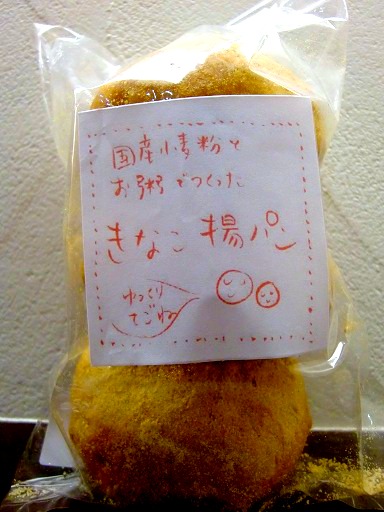 国産小麦粉と
お粥でつくった
きなこ揚パン
ゆっくり
てごね